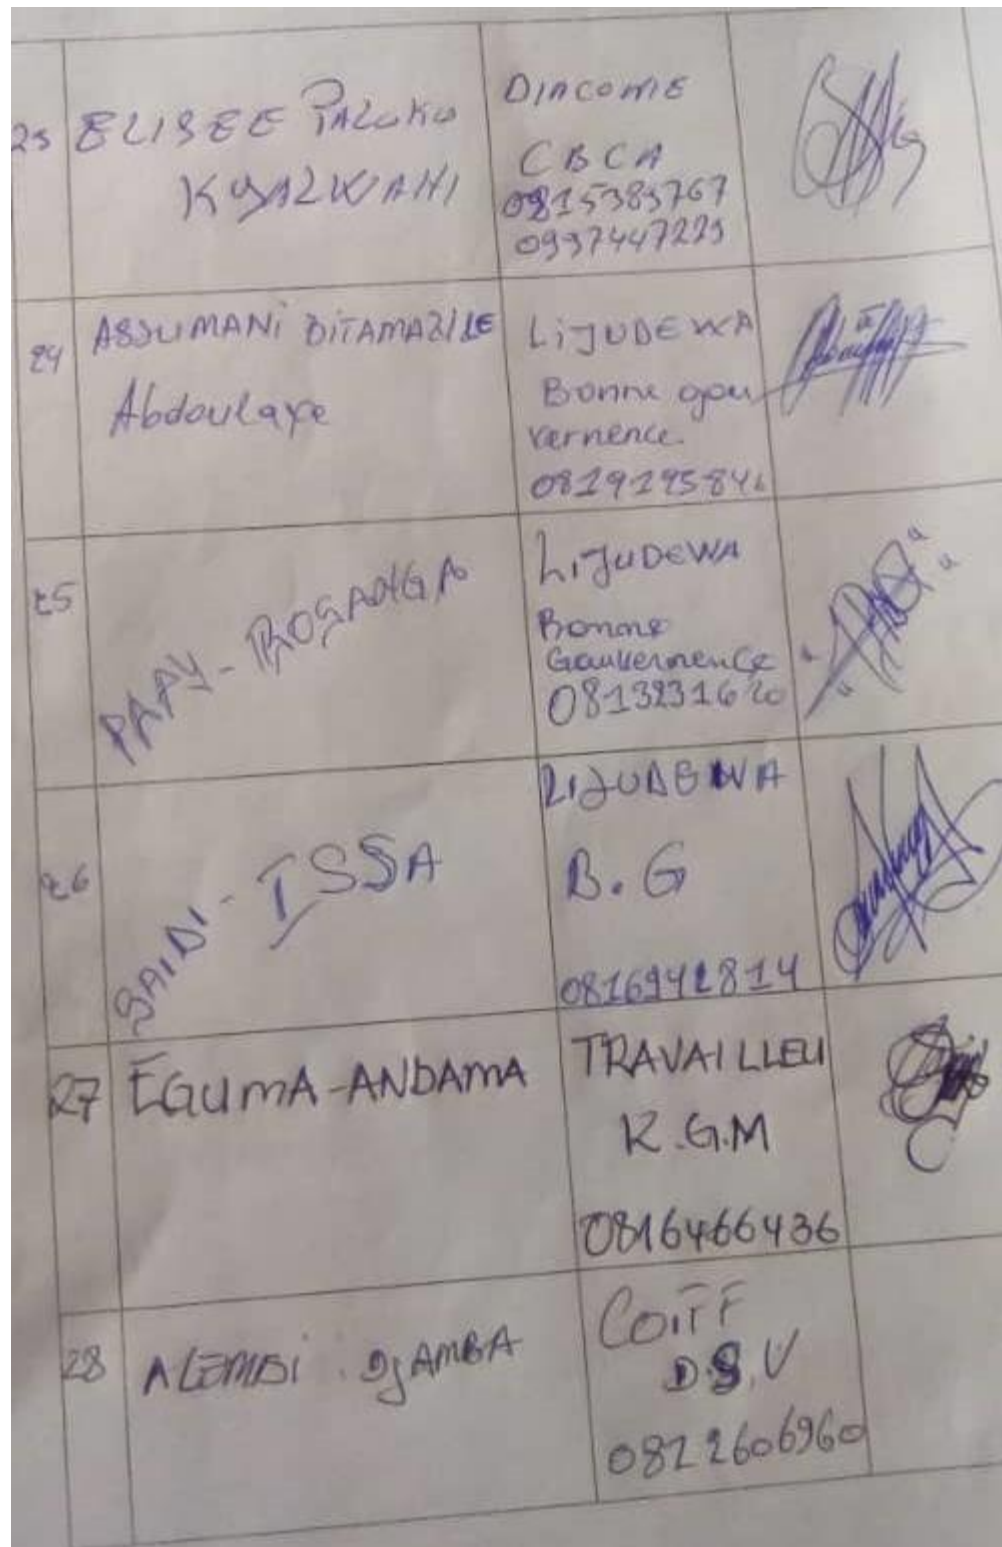 23 ELISEE PALUKU
KYALWAHI
DIACOMIE
CBCA
0815383767
0997447229
24 ASSUMANI BITAMAZILE
Abdoulaye
LiJUDEWA
Bonne gou
vernence.
082919584
25 PAAY-BOSANGA
LiJUDEWA
Bonne
Gouvernence
0813231620
26 SAIDI-ISSA
LIJUDEWA
B.G
0816942814
27 EGUMA-ANDAMA
TRAVAILLEU
R.G.M
0816466436
28 ALEMBI DJAMBA
COIFF
D.S.V
0822606960